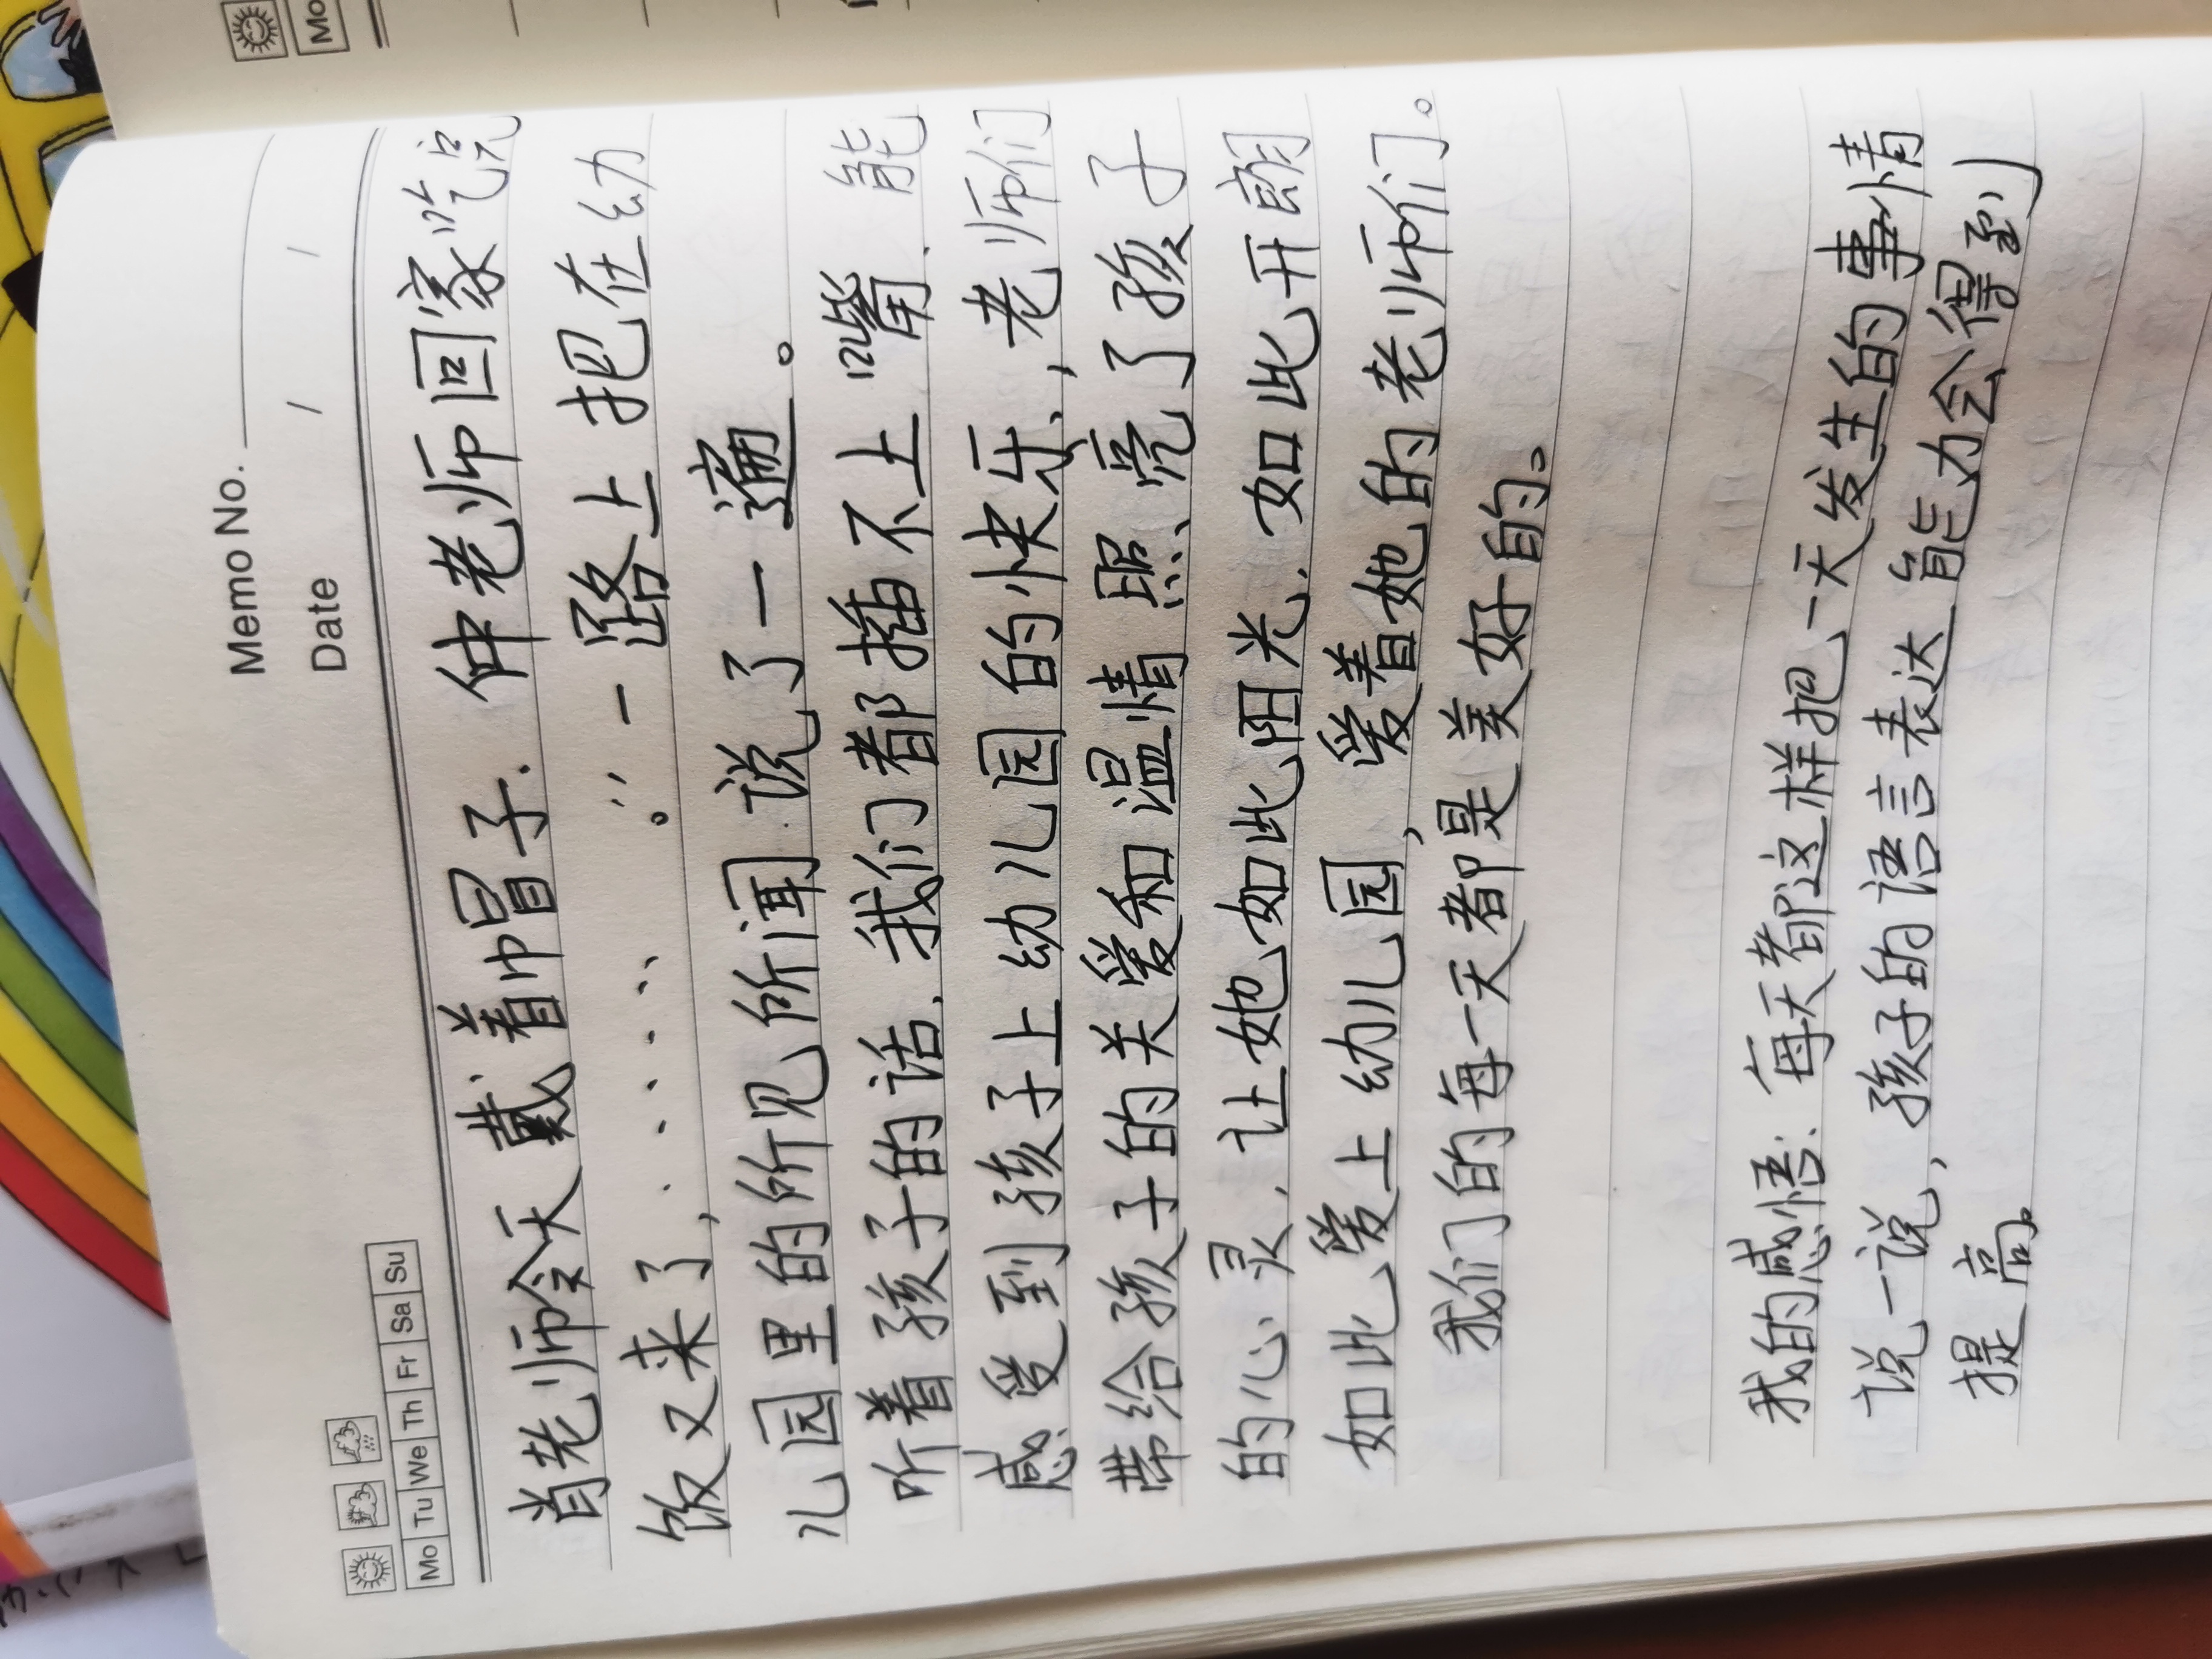 Memo No.
Date / /
Mo Tu We Th Fr Sa Su
肖老师今天戴着帽子.仲老师回家吃完
饭又来了,......。"一路上把在幼
儿园里的所见所闻.说了一遍。
听着孩子的话.我们都插不上嘴.能
感受到孩子上幼儿园的快乐,老师们
带给孩子的关爱和温情照亮了孩子
的心灵.让她如此阳光.如此开朗
如此爱上幼儿园,爱着她的老师们。
我们的每一天都是美好的。
我的感悟:每天都这样把一天发生的事情
说一说,孩子的语言表达能力会得到
提高。
Mo